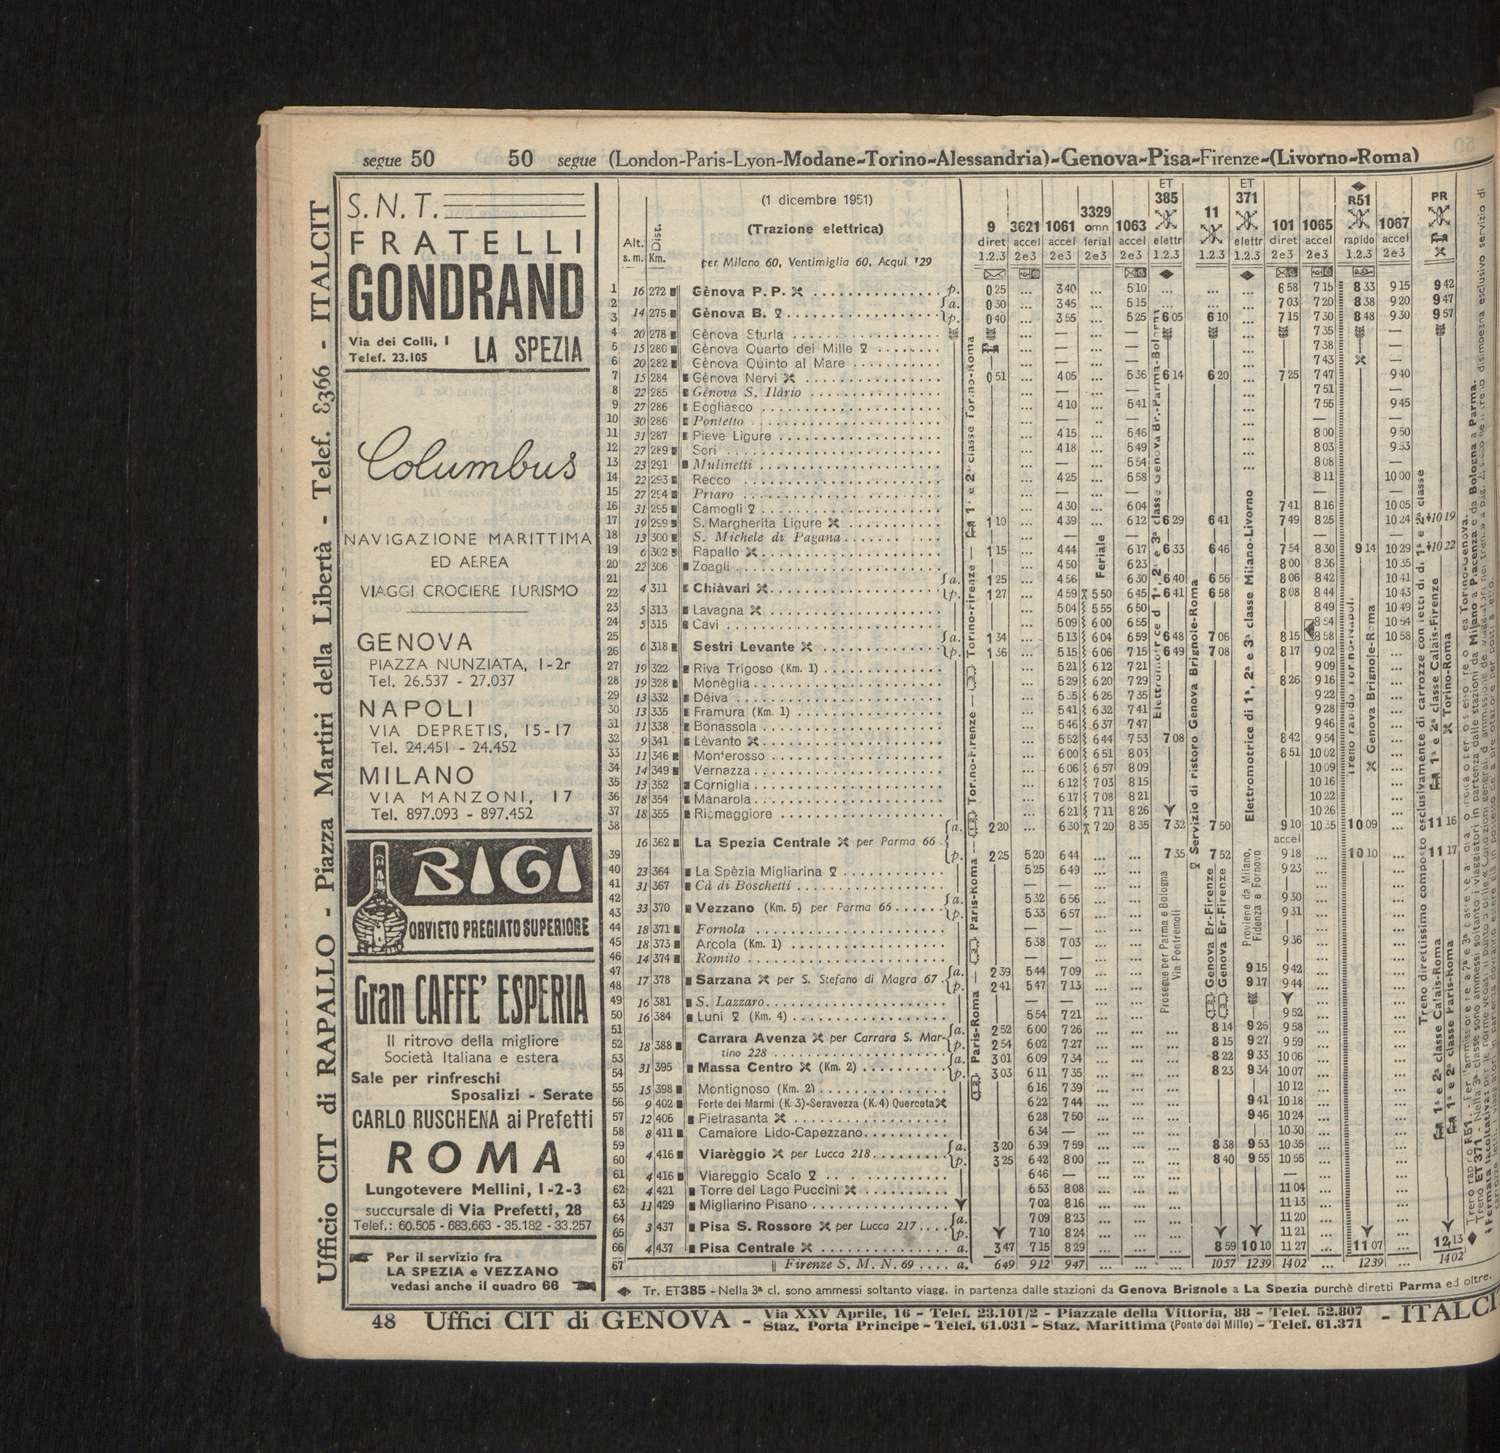 segue 50 50 segue (London-Paris-Lyon-Modane-Torino-Alessandria)-Genova-Pisa-Firenze-(Livorno-Roma)
Ufficio CIT di RAPALLO - Piazza Martiri della Libertà - Telef. 8366 - ITALCIT
S.N.T.
FRATELLI
GONDRAND
Via dei Colli, 1
Telef. 23.105
LA SPEZIA
Columbus
NAVIGAZIONE MARITTIMA
ED AEREA
VIAGGI CROCIERE TURISMO
GENOVA
PIAZZA NUNZIATA, 1-2r
Tel. 26.537 - 27.037
NAPOLI
VIA DEPRETIS, 15-17
Tel. 24.451 - 24.452
MILANO
VIA MANZONI, 17
Tel. 897.093 - 897.452
BIGI
ORVIETO PREGIATO SUPERIORE
Gran CAFFE' ESPERIA
Il ritrovo della migliore
Società Italiana e estera
Sale per rinfreschi
Sposalizi - Serate
CARLO RUSCHENA ai Prefetti
ROMA
Lungotevere Mellini, 1-2-3
succursale di Via Prefetti, 28
Telef.: 60.505 - 683.663 - 35.182 - 33.257
Per il servizio fra
LA SPEZIA e VEZZANO
vedasi anche il quadro 66
(1 dicembre 1951)
(Trazione elettrica)
per Milano 60, Ventimiglia 60, Acqui 129
Alt. s. m. Dist. Km.
9 diret 1.2.3
3621 accel 2e3
1061 accel 2e3
3329 omn ferial 2e3
1063 accel 2e3
ET 385 elettr 1.2.3
11 1.2.3
ET 371 elettr 1.2.3
101 diret 2e3
1065 accel 2e3
R51 rapido 1.2.3
1067 accel 2e3
PR
1 16 272 Gènova P. P. p. 0 25 ... 3 40 ... 5 10 ... ... 6 58 7 15 8 33 9 15 9 42
2 14 275 Gènova B. a. 0 30 ... 3 45 ... 5 15 ... ... 7 03 7 20 8 38 9 20 9 47
3 p. 0 40 ... 3 55 ... 5 25 6 05 6 10 ... 7 15 7 30 8 48 9 30 9 57
4 20 278 Gènova Sturla ... — ... — 7 35 —
5 15 280 Gènova Quarto dei Mille ... — ... — 7 38 —
6 20 282 Gènova Quinto al Mare ... — ... — 7 43 —
7 15 284 Gènova Nervi 0 51 ... 4 05 ... 5 36 6 14 6 20 ... 7 25 7 47 9 40
8 22 285 Gènova S. Ilario ... — ... — 7 51 —
9 27 286 Bogliasco ... 4 10 ... 5 41 7 55 9 45
10 30 286 Pontetto ... — ... — — —
11 31 287 Pieve Ligure ... 4 15 ... 5 46 8 00 9 50
12 27 289 Sori ... 4 18 ... 5 49 8 03 9 53
13 23 291 Mulinetti ... — 5 54 8 08 —
14 22 293 Recco ... 4 25 5 58 8 11 10 00
15 27 294 Priaro ... — — — —
16 31 295 Camogli ... 4 30 6 04 7 41 8 16 10 05
17 19 299 S. Margherita Ligure 1 10 ... 4 39 6 12 6 29 6 41 7 49 8 25 10 24 10 19
18 13 300 S. Michele di Pagana ... — — — —
19 6 302 Rapallo 1 15 ... 4 44 6 17 6 33 6 46 7 54 8 30 9 14 10 29 10 22
20 22 306 Zoagli ... 4 50 6 23 8 00 8 36 10 35
21 4 311 Chiàvari a. 1 25 ... 4 56 6 30 6 40 6 56 8 06 8 42 10 41
22 p. 1 27 ... 4 59 5 50 6 45 6 41 6 58 8 08 8 44 10 43
23 5 313 Lavagna ... 5 04 5 55 6 50 8 49 10 49
24 5 315 Cavi ... 5 09 6 00 6 55 8 54 10 54
25 6 318 Sestri Levante a. 1 34 ... 5 13 6 04 6 59 6 48 7 06 8 15 8 58 10 58
26 p. 1 36 ... 5 15 6 06 7 15 6 49 7 08 8 17 9 02 ...
27 19 322 Riva Trigoso (Km. 1) ... 5 21 6 12 7 21 9 09 ...
28 19 328 Monèglia ... 5 29 6 20 7 29 8 26 9 16 ...
29 13 332 Dèiva ... 5 35 6 26 7 35 9 22 ...
30 13 335 Framura (Km. 1) ... 5 41 6 32 7 41 9 28 ...
31 11 338 Bonassola ... 5 46 6 37 7 47 9 46 ...
32 9 341 Lèvanto ... 5 52 6 44 7 53 7 08 8 42 9 54 ...
33 11 346 Monterosso ... 6 00 6 51 8 03 8 51 10 02 ...
34 14 349 Vernazza ... 6 06 6 57 8 09 10 09 ...
35 13 352 Corniglia ... 6 12 7 03 8 15 10 16 ...
36 18 354 Manarola ... 6 17 7 08 8 21 10 22 ...
37 18 355 Riomaggiore ... 6 21 7 11 8 26 10 26 ...
38 16 362 La Spezia Centrale per Parma 66 a. 2 20 ... 6 30 7 20 8 35 7 32 7 50 9 10 10 35 10 09 ... 11 16
accel
39 p. 2 25 5 20 6 44 ... ... 7 35 7 52 9 18 ... 10 10 ... 11 17
40 23 364 La Spèzia Migliarina 5 25 6 49 ... ... 9 23 ... ...
41 31 367 Cà di Boschetti — — ... ... — ... ...
42 33 370 Vezzano (Km. 5) per Parma 66 a. 5 32 6 56 ... ... 9 30 ... ...
43 p. 5 33 6 57 ... ... 9 31 ... ...
44 18 371 Fornola — — ... ... — ... ...
45 18 373 Arcola (Km. 1) 5 38 7 03 ... ... 9 36 ... ...
46 14 374 Romito — — ... ... — ... ...
47 17 378 Sarzana per S. Stefano di Magra 67 a. 2 39 5 44 7 09 ... ... 9 15 9 42 ... ...
48 p. 2 41 5 47 7 13 ... ... 9 17 9 44 ... ...
49 16 381 S. Lazzaro — — ... ... ... ...
50 16 384 Luni (Km. 4) 5 54 7 21 ... ... 9 52 ... ...
51 18 388 Carrara Avenza per Carrara S. Martino 228 a. 2 52 6 00 7 26 ... ... ... 8 14 9 26 9 58 ... ...
52 p. 2 54 6 02 7 27 ... ... ... 8 15 9 27 9 59 ... ...
53 31 395 Massa Centro (Km. 2) a. 3 01 6 09 7 34 ... ... ... 8 22 9 33 10 06 ... ...
54 p. 3 03 6 11 7 35 ... ... ... 8 23 9 34 10 07 ... ...
55 15 398 Montignoso (Km. 2) 6 16 7 39 ... ... ... 10 12 ... ...
56 9 402 Forte dei Marmi (K. 3)-Seravezza (K. 4) Querceta 6 22 7 44 ... ... ... 9 41 10 18 ... ...
57 12 406 Pietrasanta 6 28 7 50 ... ... ... 9 46 10 24 ... ...
58 8 411 Camaiore Lido-Capezzano 6 34 — ... ... ... 10 30 ... ...
59 4 416 Viarèggio per Lucca 218 a. 3 20 6 39 7 59 ... ... ... 8 38 9 53 10 35 ... ...
60 p. 3 25 6 42 8 00 ... ... ... 8 40 9 55 10 55 ... ...
61 4 416 Viareggio Scalo 6 46 — ... ... ... — ... ...
62 4 421 Torre del Lago Puccini 6 53 8 08 ... ... ... 11 04 ... ...
63 11 429 Migliarino Pisano 7 02 8 16 ... ... ... 11 13 ... ...
64 3 437 Pisa S. Rossore per Lucca 217 a. 7 09 8 23 ... ... ... 11 20 ... ...
65 p. 7 10 8 24 ... ... ... 11 21 ... ...
66 4 437 Pisa Centrale a. 3 47 7 15 8 29 ... ... ... 8 59 10 10 11 27 ... 11 07 ... 12 13
67 Firenze S. M. N. 69 a. 6 49 9 12 9 47 ... ... ... 10 57 12 39 14 02 ... 12 39 ... 14 02
Feriale
Elettromotrice di 1ª, 2ª e 3ª classe Milano-Livorno
Servizio di ristoro Genova Brignole-Roma
Prosegue per Parma e Bologna
Via Pontremoli
Genova Br-Firenze
Genova Br-Firenze
Proviene da Milano,
Fidenza e Fornovo
Genova Brignole-Roma
Paris-Roma
Paris-Roma
Torino-Firenze
1ª e 2ª classe Calais-Firenze
Torino-Roma
1ª e 2ª classe Calais-Roma
1ª e 2ª classe Paris-Roma
Tr. ET385 - Nella 3ª cl. sono ammessi soltanto viagg. in partenza dalle stazioni da Genova Brignole a La Spezia purchè diretti Parma ed oltre.
48 Uffici CIT di GENOVA - Via XXV Aprile, 16 - Telef. 23.101/2 - Piazzale della Vittoria, 88 - Telef. 52.807
Staz. Porta Principe - Telef. 61.031 - Staz. Marittima (Ponte dei Mille) - Telef. 61.371 - ITALCI